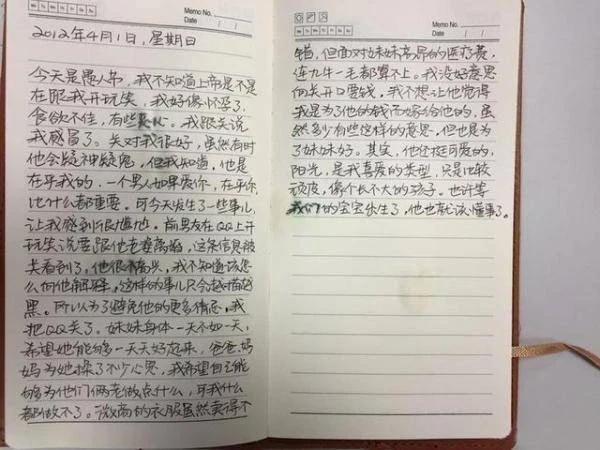 Memo No.
Date / /
2012年4月1日,星期日
今天是愚人节,我不知道上帝是不是
在跟我开玩笑,我好像怀孕了,
食欲不佳,有些恶心。我跟关说
我感冒了。关对我很好,虽然有时
他会疑神疑鬼,但我知道,他是
在乎我的,一个男人如果爱你,在乎你
比什么都重要。可今天发生了一些事儿,
让我感到很尴尬。前男友在QQ上开
玩笑说要跟他老婆离婚,这条信息被
关看到了,他很不高兴,我不知道该怎
么向他解释,这样的事儿只会越描越
黑。所以为了避免他的更多猜忌,我
把QQ关了。妹妹身体一天不如一天,
希望她能够一天天好起来,爸爸妈
妈为她操了不少心思,我希望自己能
够为他们俩老做点什么,可我什么
都做不了。微商的衣服虽然卖得不
Memo No.
Date / /
错,但面对妹妹高昂的医疗费,
连九牛一毛都算不上。我没好意思
向关开口要钱,我不想让他觉得
我是为了他的钱而嫁给他的,虽
然多少有些这样的意思,但也是为
了妹妹好。其实,他还挺可爱的,
阳光,是我喜爱的类型,只是比较
顽皮,像个长不大的孩子。也许等
我们的宝宝出生了,他也就该懂事了。